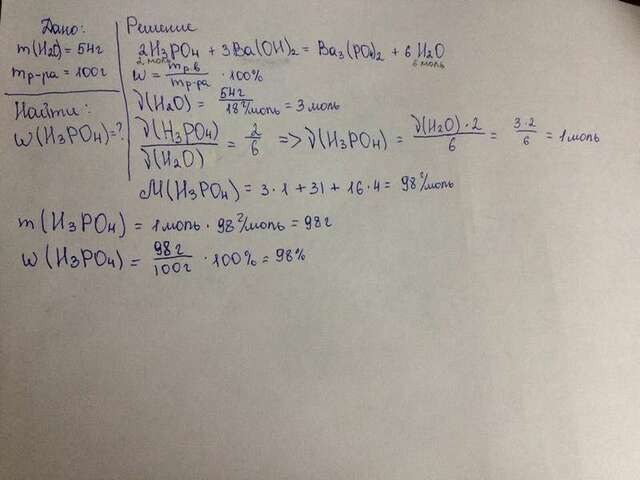 Дано:
m(H2O) = 54г
mр-ра = 100г
Найти:
w(H3PO4)=?
Решение
2H3PO4 + 3Ba(OH)2 = Ba3(PO4)2 + 6H2O
2 моль 6 моль
w = mр.в / mр-ра · 100%
ν(H2O) = 54г / 18г/моль = 3 моль
ν(H3PO4) / ν(H2O) = 2/6 => ν(H3PO4) = ν(H2O)·2 / 6 = 3·2 / 6 = 1моль
M(H3PO4) = 3·1 + 31 + 16·4 = 98г/моль
m(H3PO4) = 1моль · 98г/моль = 98г
w(H3PO4) = 98г / 100г · 100% = 98%